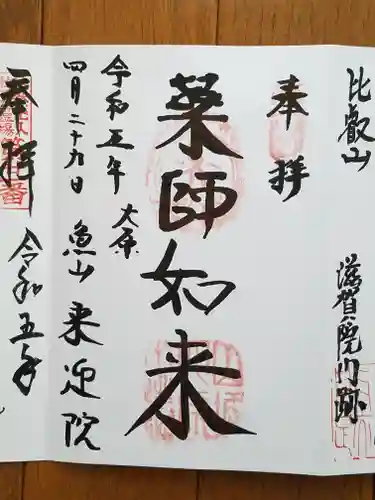 比叡山
滋賀院門跡
奉拝
薬師如来
令和五年
大原
四月二十九日
魚山 来迎院
奉拝
令和五年